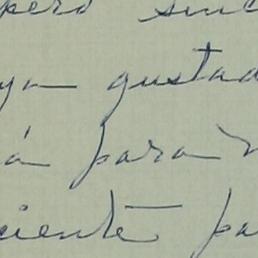 pero sinc
ya gustad
á para
ciente pa